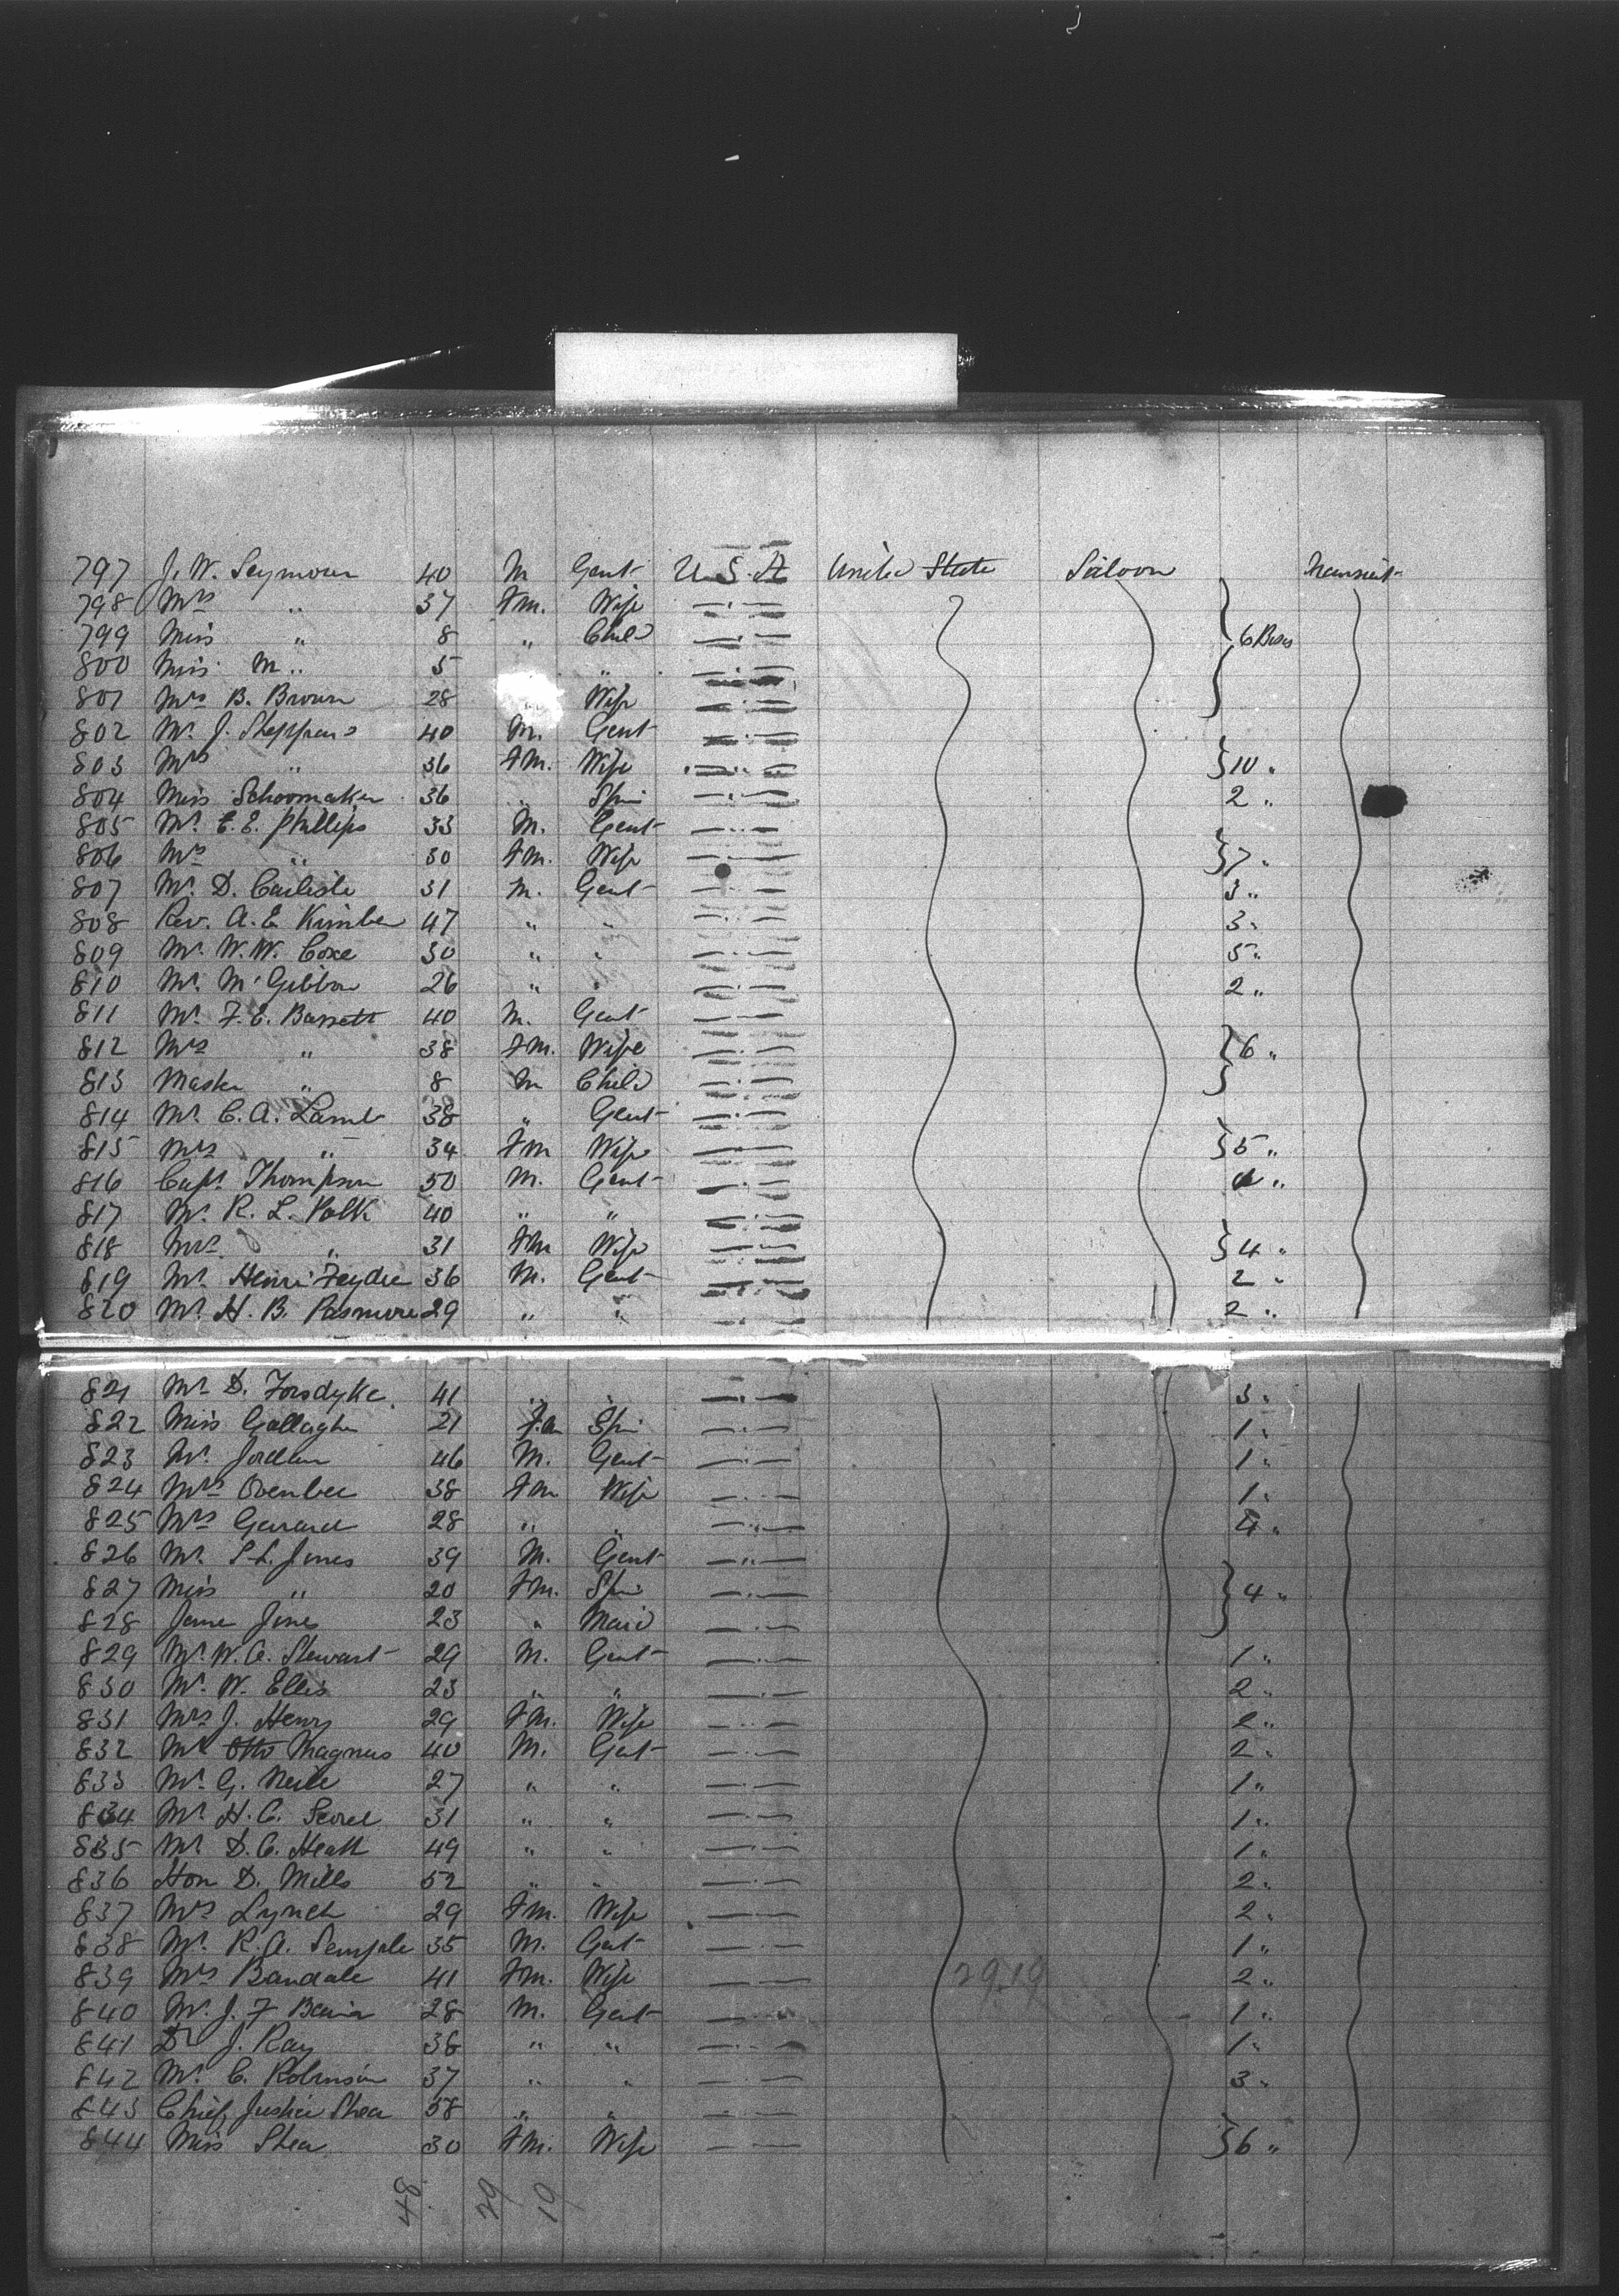 797 J. W. Seymour 40 M Gent U.S.A United State Saloon Transient
798 Mrs " 37 Fm. Wife
799 Miss " 8 " Child 6 Bxs
800 Miss M " 5 "
801 Mrs B. Brown 28 Wife
802 Mr J. Sheppard 40 M. Gent
803 Mrs " 36 Fm. Wife } 10 "
804 Miss Schoomaker 36 " Spin 2 "
805 Mr E. E. Phillips 33 M. Gent
806 Mrs " 30 Fm. Wife } 7 "
807 Mr D. Carlisle 31 M. Gent 3 "
808 Rev. A. E. Kimber 47 " " 3 "
809 Mr W. W. Coxe 30 " " 5 "
810 Mr McGibbon 26 " " 2 "
811 Mr F. E. Bassett 40 M. Gent
812 Mrs " 38 Fm. Wife } 6 "
813 Master " 8 M Child }
814 Mr C. A. Lamb 38 " Gent
815 Mrs " 34 Fm Wife } 5 "
816 Capt Thompson 50 M. Gent "
817 Mr R. L. Polk 40 " "
818 Mrs " 31 Fm Wife } 4 "
819 Mr Henri 36 M. Gent 2 "
820 Mr H. B. Pasmore 29 " " 2 "
821 Mr D. Forsdyke 41 " " 3 "
822 Miss Gallagher 21 Fm Spin 1 "
823 Mr Jordan 46 M. Gent 1 "
824 Mrs 38 Fm Wife 1 "
825 Mrs Gerrard 28 " " 4 "
826 Mr S. L. Jones 39 M. Gent
827 Miss " 20 Fm. Spin } 4 "
828 Jane Jones 23 " Maid
829 Mr W. A. Stewart 29 M. Gent 1 "
830 Mr W. Ellis 23 " " 2 "
831 Mrs J. Henry 29 Fm. Wife 2 "
832 Mr Otto Magnus 40 M. Gent 2 "
833 Mr G. 27 " " 1 "
834 Mr H. C. 31 " " 1 "
835 Mr D. C. Heath 49 " " 1 "
836 Hon D. Mills 52 " " 2 "
837 Mrs Lynch 29 Fm. Wife 2 "
838 Mr R. A. Semple 35 M. Gent 1 "
839 Mrs Bandale 41 Fm. Wife 2919 2 "
840 Mr J. F. 28 M. Gent 1 "
841 Dr J. Ray 36 " " 1 "
842 Mr C. Robinson 37 " " 3 "
843 Chief Justice Shea 58 " "
844 Miss Shea 30 Fm. Wife } 6 "
48 29 19